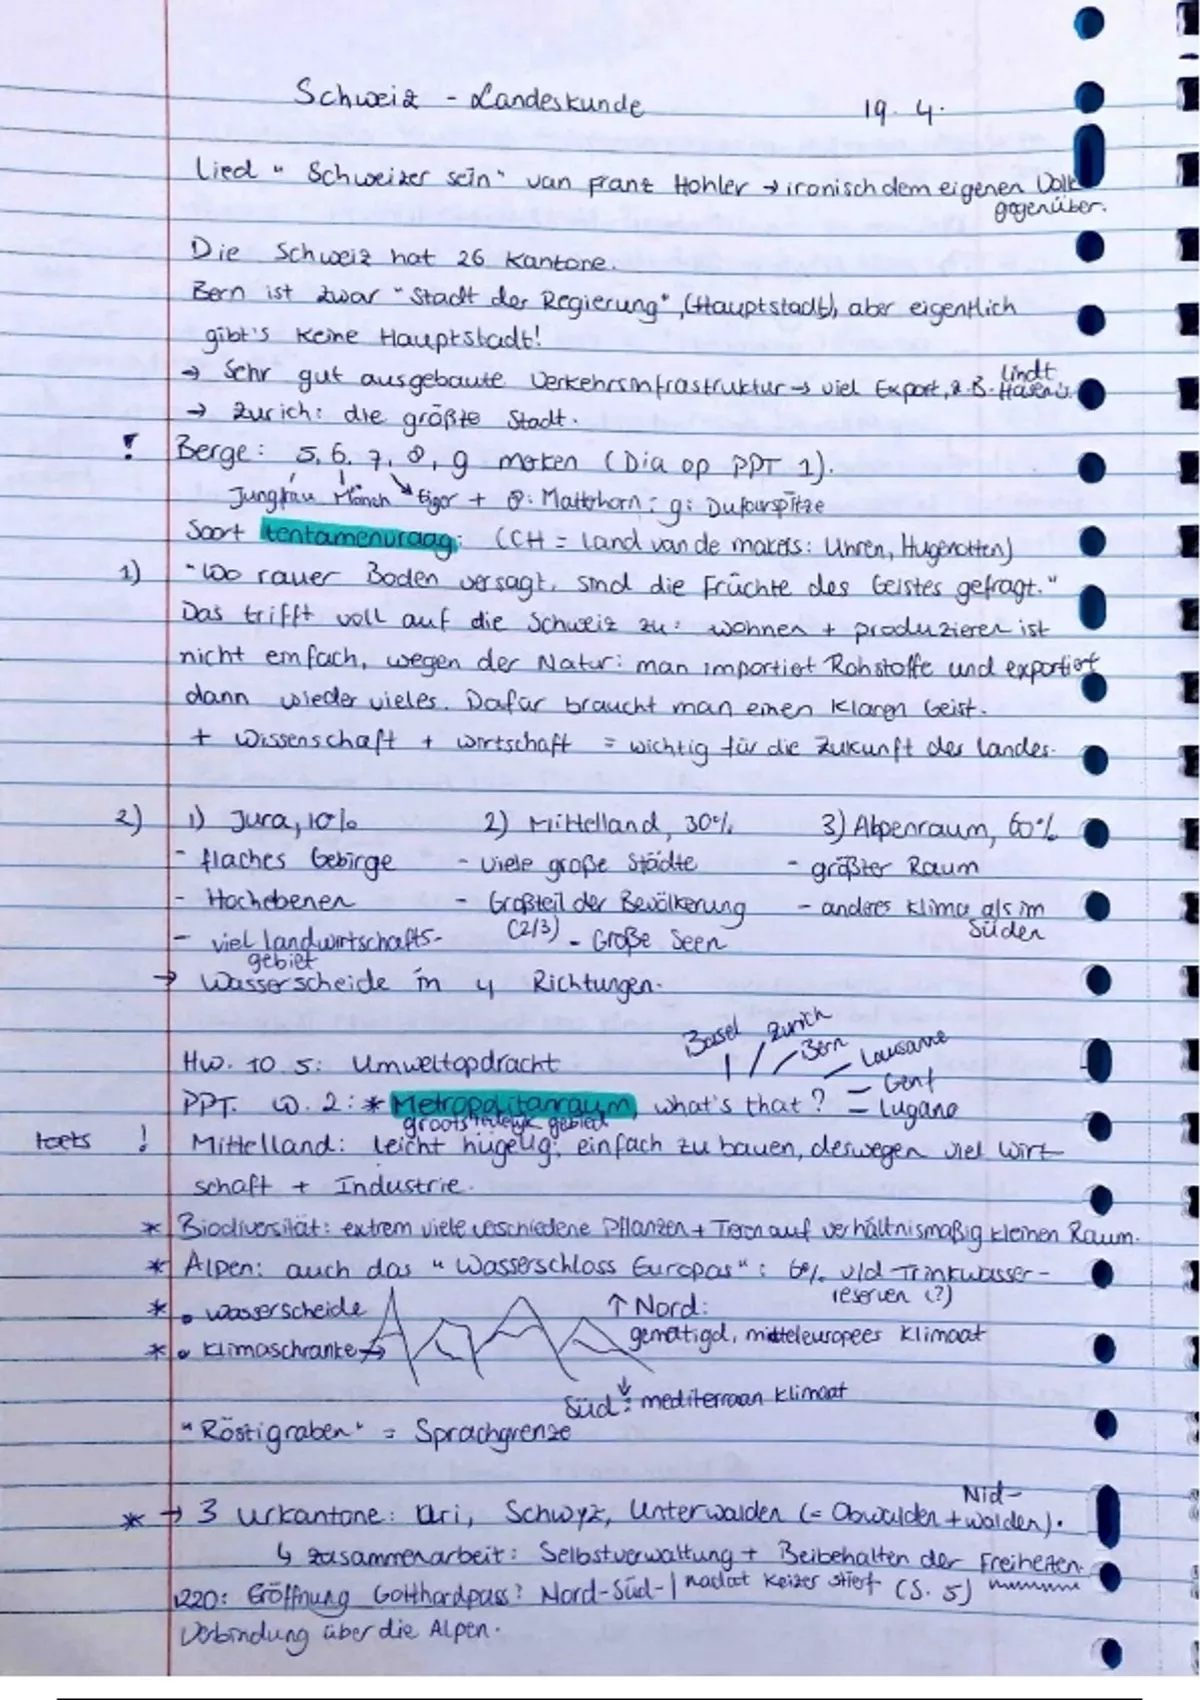 Schweiz - Landeskunde 19. 4.
Lied " Schweizer sein" van Franz Hohler → ironisch dem eigenen Volk
gegenüber.
Die Schweiz hat 26 Kantone.
Bern ist zwar "Stadt der Regierung", (Hauptstadt), aber eigentlich
gibt's keine Hauptstadt!
→ Sehr gut ausgebaute Verkehrsinfrastruktur → viel Export, z.B. Lindt
→ Zurich: die größte Stadt.
! Berge: 5, 6, 7, 8, 9 merken (Dia op PPT 1).
Jungfrau Mönch Eiger + 8: Matterhorn; 9: Dufourspitze
Soort tentamenvraag: (CH = Land van de makers: Uhren, Hugenotten)
1) "Wo rauer Boden versagt, sind die Früchte des Geistes gefragt."
Das trifft voll auf die Schweiz zu: wohnen + produzieren ist
nicht einfach, wegen der Natur: man importiert Rohstoffe und exportiert
dann wieder vieles. Dafür braucht man einen klaren Geist.
+ Wissenschaft + Wirtschaft = wichtig für die Zukunft des Landes.
2) 1) Jura, 10% 2) Mittelland, 30% 3) Alpenraum, 60%
- flaches Gebirge - viele große Städte - größter Raum
- Hochebenen - Großteil der Bevölkerung - anderes Klima als im
(2/3) - Große Seen Süden
- viel landwirtschafts-
gebiet
→ Wasserscheide in 4 Richtungen.
Basel Zurich Bern Lausanne
Hw. 10.5: Umweltopdracht
Genf
PPT. W. 2: * Metropolitanraum, what's that? Lugano
grootstedelijk gebied
toets ! Mittelland: leicht hügelig; einfach zu bauen, deswegen viel Wirt-
schaft + Industrie.
* Biodiversität: extrem viele verschiedene Pflanzen + Tieren auf verhältnismäßig kleinen Raum.
* Alpen: auch das "Wasserschloss Europas": 6% v/d Trinkwasser-
reserven (?)
* • wasserscheide ↑ Nord:
* • Klimaschranke → gematigd, mitteleuropees klimaat
Süd ↓: mediterraan klimaat
"Röstigraben" = Sprachgrenze
* → 3 Urkantone: Uri, Schwyz, Unterwalden (= Obwalden + Nid-
walden).
↳ zusammenarbeit: Selbstverwaltung + Beibehalten der Freiheiten.
1220: Eröffnung Gotthardpass: Nord-Süd- | nadat Keizer stierf (S. 5)
Verbindung über die Alpen.